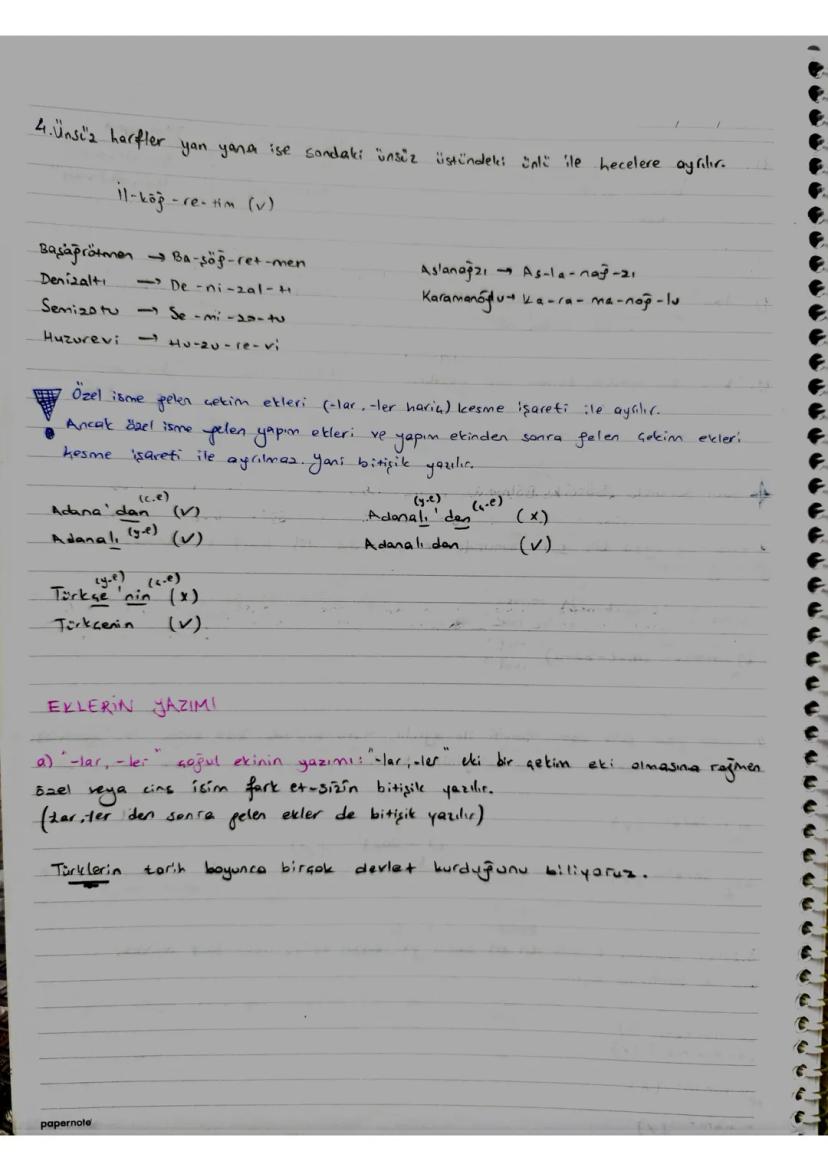 4. Ünsüz harfler yan yana ise sondaki ünsüz üstündeki ünlü ile hecelere ayrılır.
İl-köğ-re-tim (v)
Başöğretmen → Ba-şöğ-ret-men
Aslanağzı → As-la-nağ-zı
Denizaltı → De-ni-zal-tı
Karamanoğlu → Ka-ra-ma-noğ-lu
Semizotu → Se-mi-zo-tu
Huzurevi → Hu-zu-re-vi
Özel isme gelen çekim ekleri (-lar, -ler hariç) kesme işareti ile ayrılır.
Ancak özel isme gelen yapım ekleri ve yapım ekinden sonra gelen çekim ekleri
kesme işareti ile ayrılmaz. Yani bitişik yazılır.
(ç.e) (y.e) (ç.e)
Adana'dan (v) Adanalı'dan (x)
Adanalı (y.e) (v) Adanalıdan (v)
(y.e) (ç.e)
Türkçe'nin (x)
Türkçenin (v)
EKLERİN YAZIMI
a) "-lar, -ler" çoğul ekinin yazımı: "-lar, -ler" eki bir çekim eki olmasına rağmen
özel veya cins isim fark et-sizin bitişik yazılır.
(lar, ler den sonra gelen ekler de bitişik yazılır)
Türklerin tarih boyunca birçok devlet kurduğunu biliyoruz.
papernote